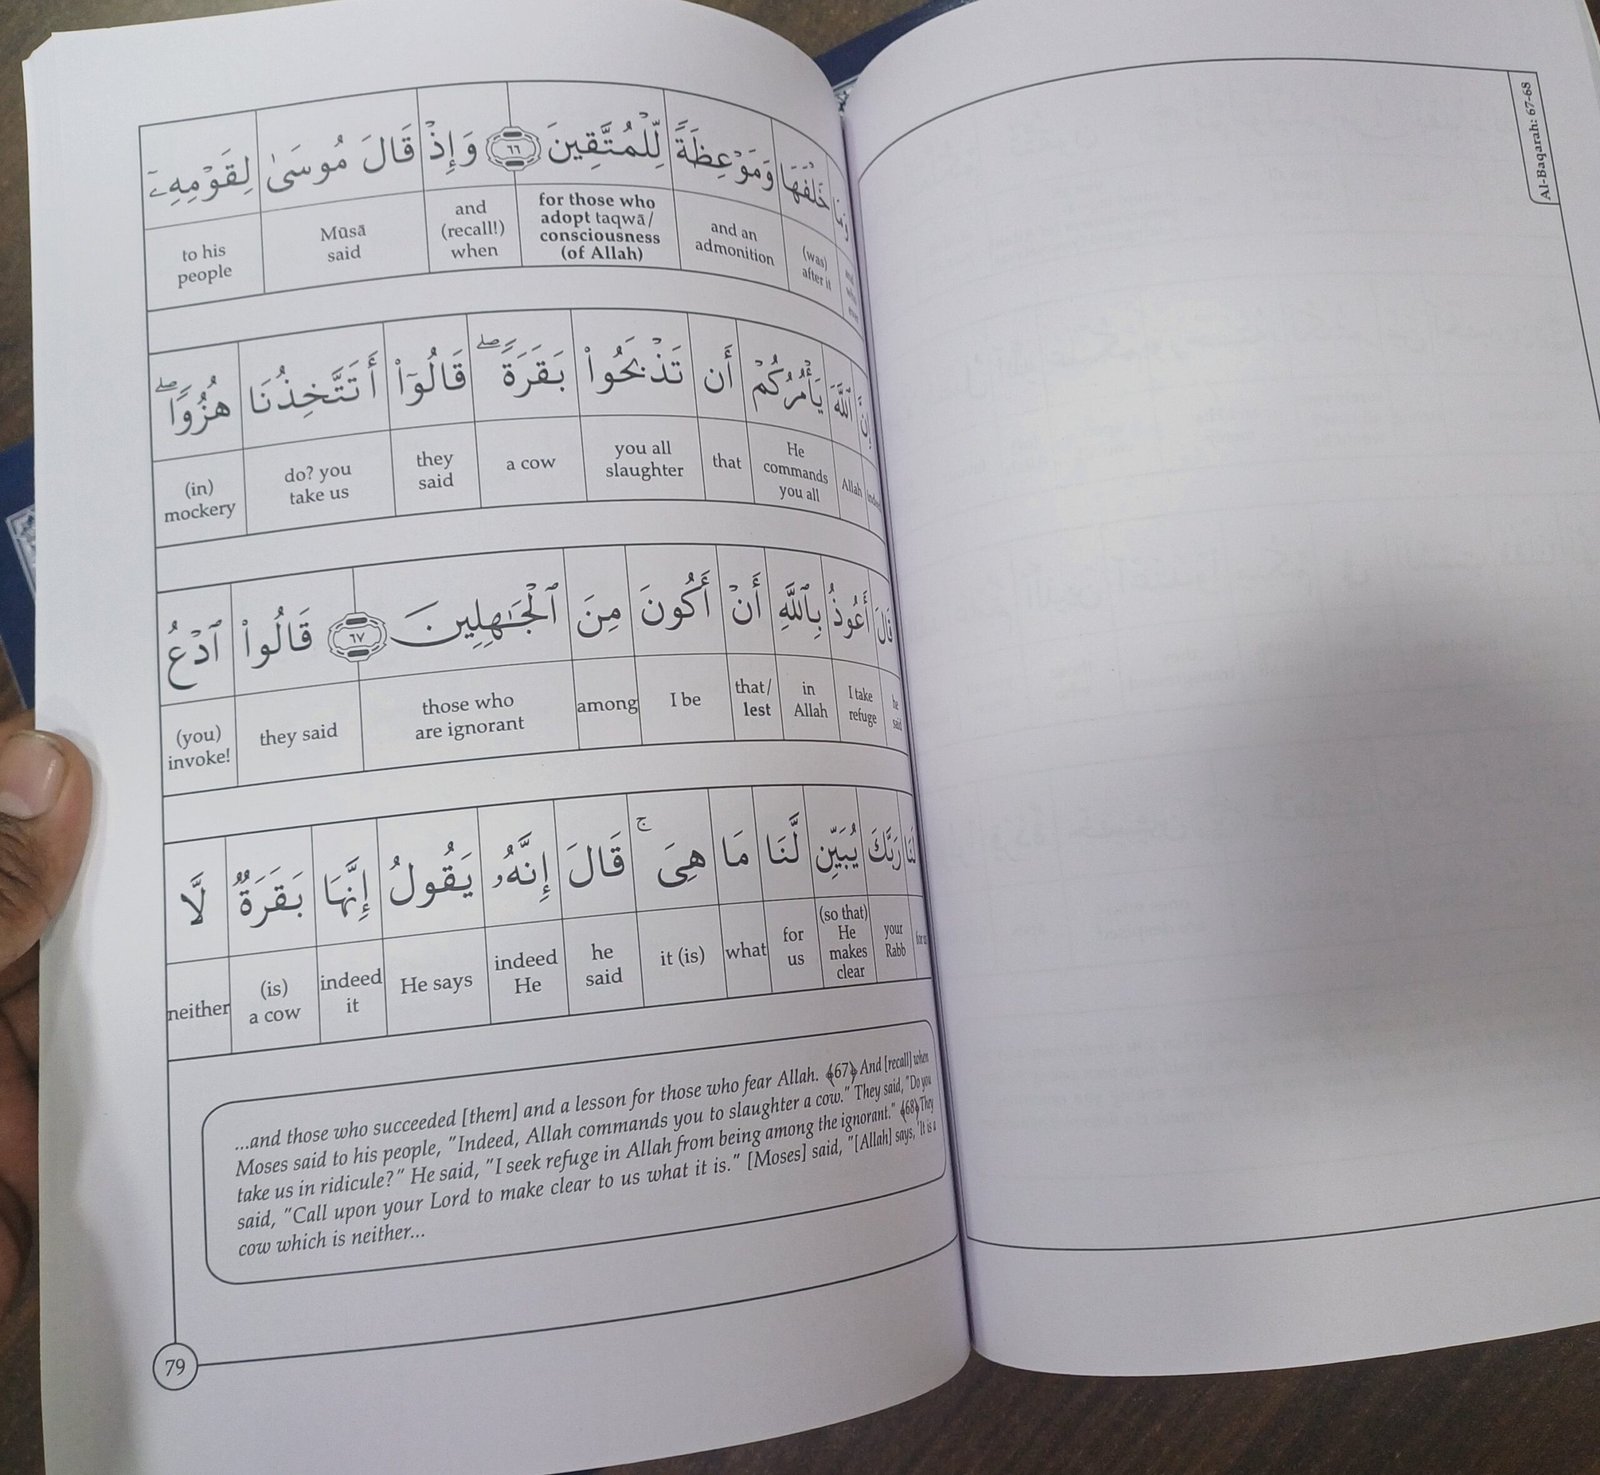 وَمَا خَلْفَهَا وَمَوْعِظَةً لِّلْمُتَّقِينَ ٦٦ وَإِذْ قَالَ مُوسَىٰ لِقَوْمِهِۦٓ
(was) after it
and an admonition
for those who adopt taqwā/ consciousness (of Allah)
and (recall!) when
Mūsā said
to his people
إِنَّ ٱللَّهَ يَأْمُرُكُمْ أَن تَذْبَحُوا۟ بَقَرَةً ۖ قَالُوٓا۟ أَتَتَّخِذُنَا هُزُوًا ۖ
indeed
Allah
He commands you all
that
you all slaughter
a cow
they said
do? you take us
(in) mockery
قَالَ أَعُوذُ بِٱللَّهِ أَنْ أَكُونَ مِنَ ٱلْجَـٰهِلِينَ ٦٧ قَالُوا۟ ٱدْعُ
he said
I take refuge
in Allah
that/ lest
I be
among
those who are ignorant
they said
(you) invoke!
لَنَا رَبَّكَ يُبَيِّن لَّنَا مَا هِىَ ۚ قَالَ إِنَّهُۥ يَقُولُ إِنَّهَا بَقَرَةٌ لَّا
your Rabb
(so that) He makes clear
for us
what
it (is)
he said
indeed He
He says
indeed it
(is) a cow
neither
...and those who succeeded [them] and a lesson for those who fear Allah. ﴾67﴿ And [recall] when
Moses said to his people, "Indeed, Allah commands you to slaughter a cow." They said, "Do you
take us in ridicule?" He said, "I seek refuge in Allah from being among the ignorant." ﴾68﴿ They
said, "Call upon your Lord to make clear to us what it is." [Moses] said, "[Allah] says, 'It is a
cow which is neither...
79
Al-Baqarah: 67-68